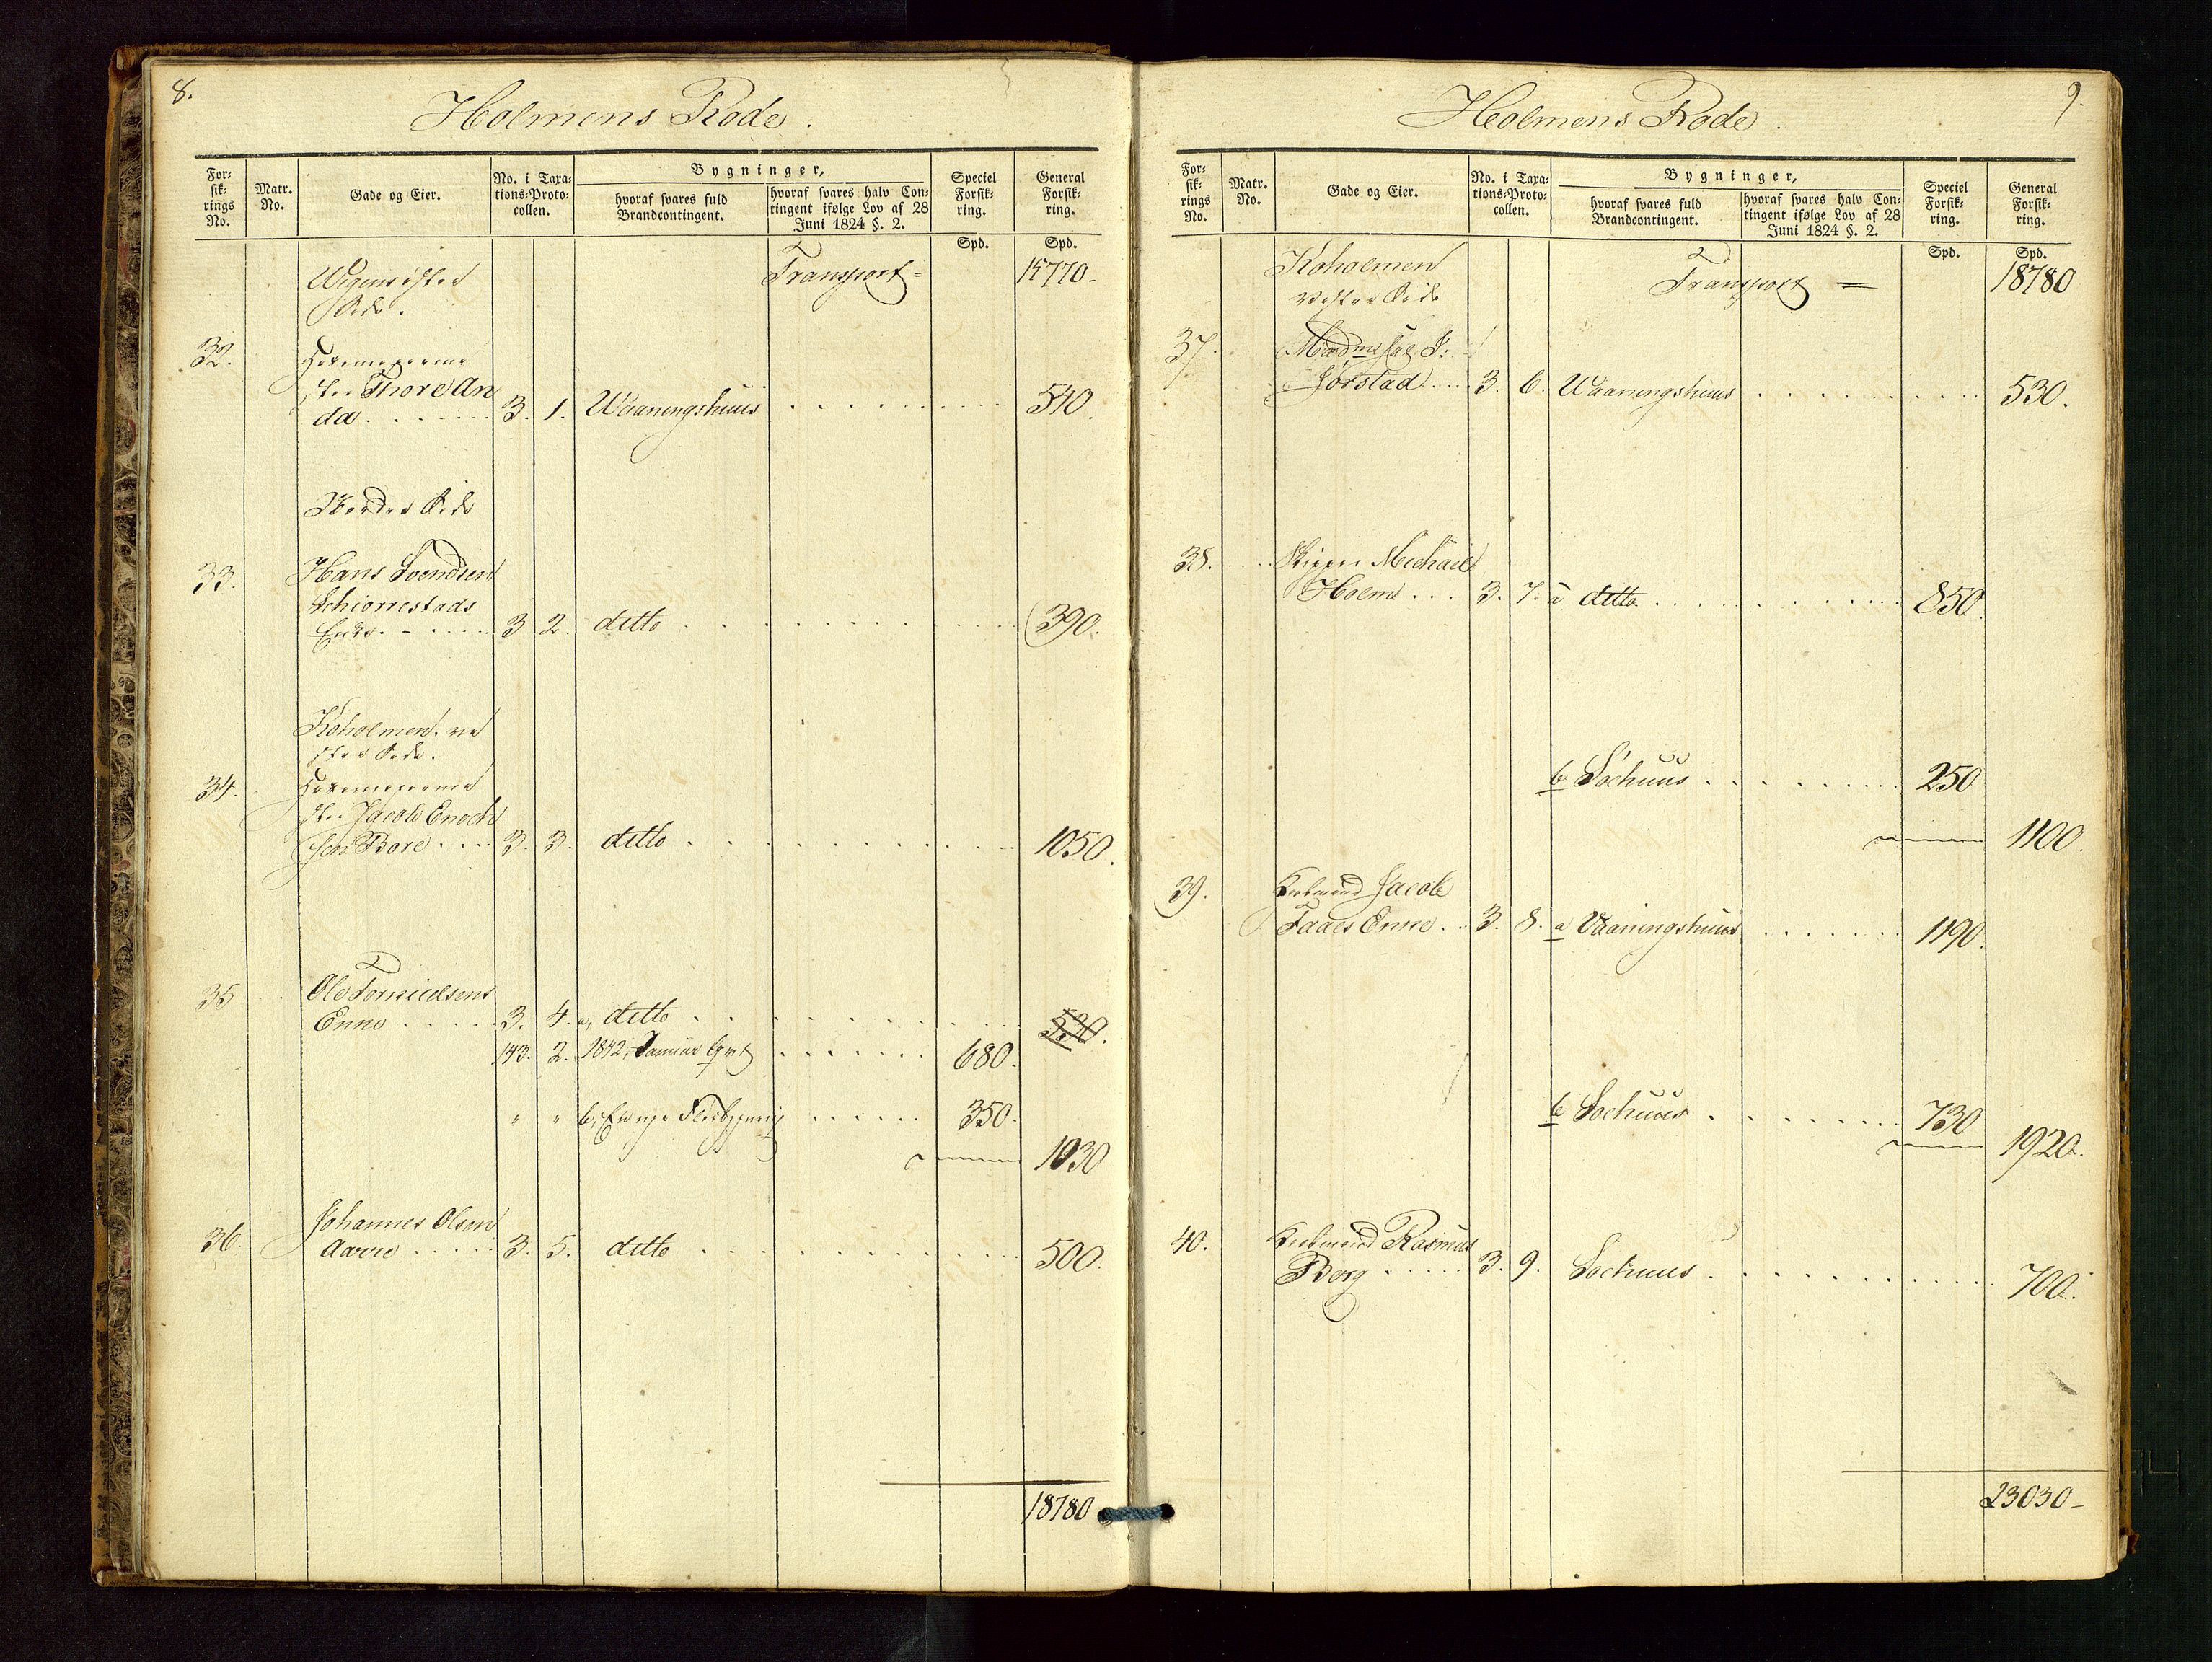 8.
Holmens Rode.
For=
sik=
rings
No.
Matr.
No.
Gade og Eier.
No. i Taxa=
tions=Proto=
collen.
Bygninger,
hvoraf svares fuld
Brandcontingent.
hvoraf svares halv Con=
tingent ifølge Lov af 28
Juni 1824 §. 2.
Speciel
Forsik=
ring.
General
Forsik=
ring.
Spd. Spd.
Wigens østre Transport = 15770-
Side.
32.
Thore An
da 3. 1. Waaningshuus 540.
Nordre Side
33. Hans Svendsen
Schiorrestads
Enke 3 2. ditto 390.
Koholmen ve
stre Side.
34.
Jacob Enoch
sen Bore 3. 3. ditto 1050.
35 Ole Tornielsens
Enke 3. 4. a, ditto 530.
143. 2. 1842, Januar 680.
" " b, En nye 350.
1030
36. Johannes Olsen
Aarre 3. 5. ditto 500.
18780
9.
Holmens Rode.
For=
sik=
rings
No.
Matr.
No.
Gade og Eier.
No. i Taxa=
tions=Proto=
collen.
Bygninger,
hvoraf svares fuld
Brandcontingent.
hvoraf svares halv Con=
tingent ifølge Lov af 28
Juni 1824 §. 2.
Speciel
Forsik=
ring.
General
Forsik=
ring.
Spd. Spd.
Koholmen Transport = 18780
vestre Side
37.
Jørstad 3. 6. Waaningshuus 530.
38. Skipper Michael
Holm 3. 7. a ditto 850
b Søehuus 250
1100.
39. Kiøbmand Jacob
Faaes Enke 3. 8. a Vaaningshuus 1190.
b Søehuus 730
1920.
40. Kiøbmand Rasmus
Berg 3. 9. Søehuus 700.
23030-